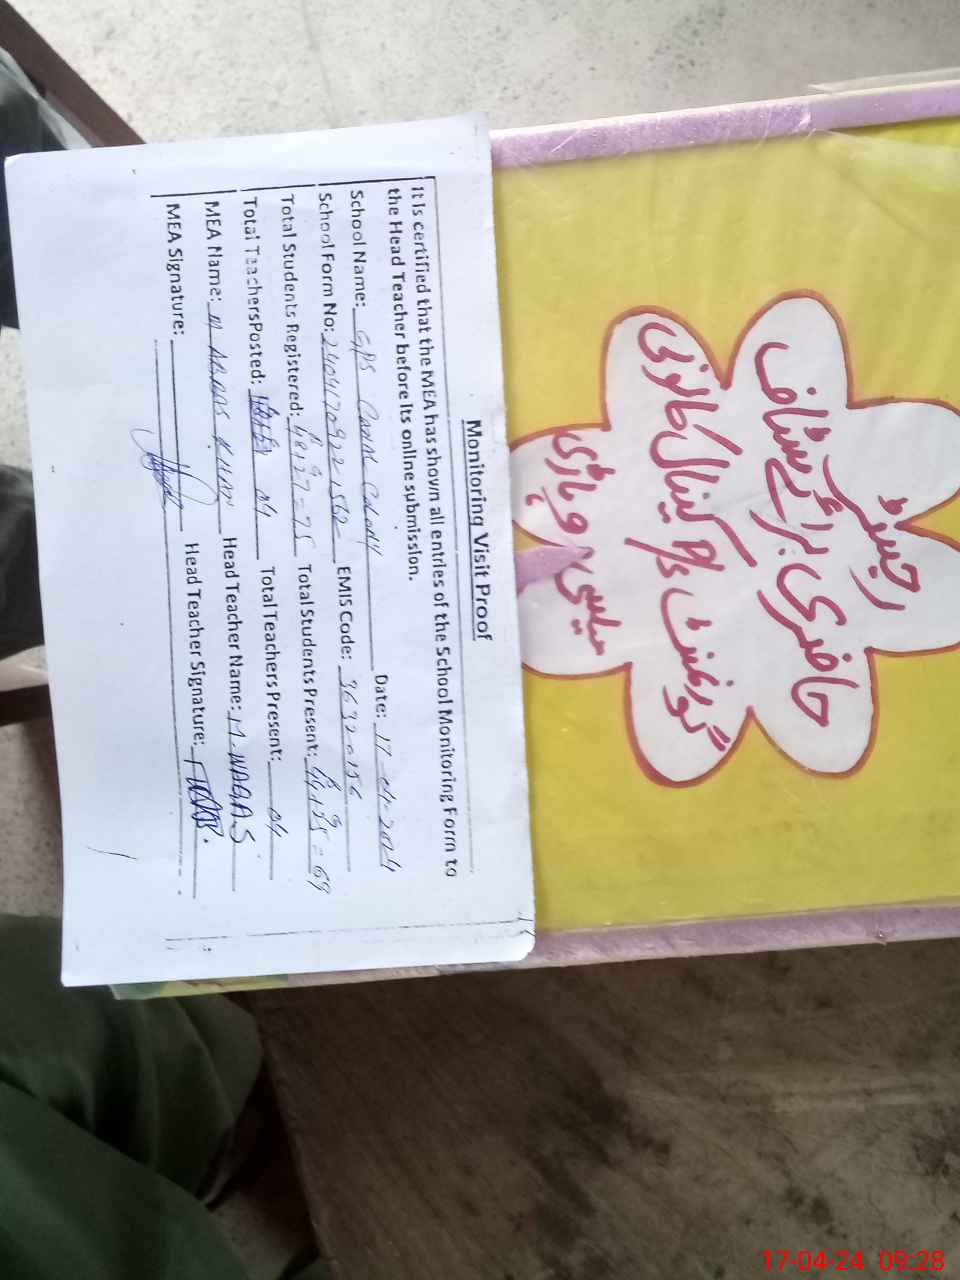 Monitoring Visit Proof
It is certified that the MEA has shown all entries of the School Monitoring Form to
the Head Teacher before its online submission.
School Name: GPS Canal Colony Date: 17-04-2024
School Form No: EMIS Code: 36320156
Total Students Registered: = 75 Total Students Present: = 69
Total Teachers Posted: 04 Total Teachers Present: 04
MEA Name: M ABBAS KHAN Head Teacher Name: M. WAQAS
MEA Signature: Head Teacher Signature:
رجسٹر
حاضری برائے سٹاف
گورنمنٹ کینال کالونی
میلسی وہاڑی
17-04-24 09:28